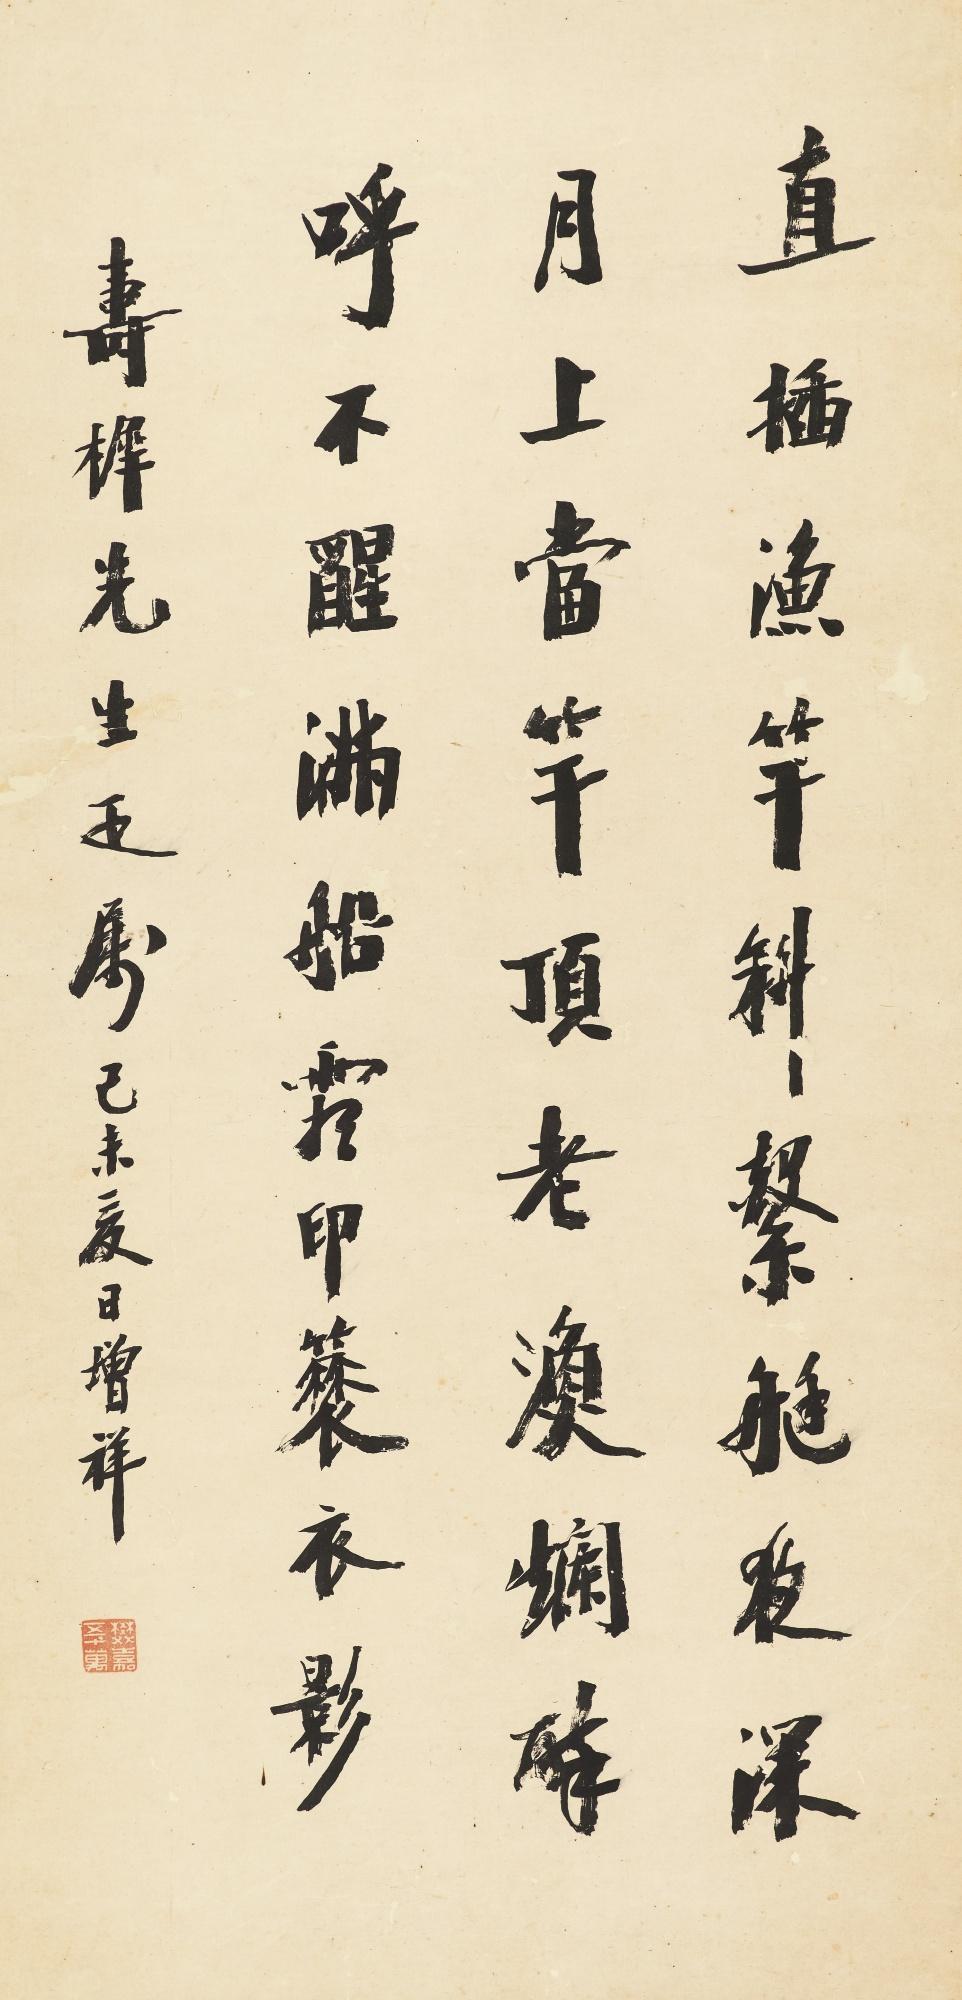 直插漁竿斜繫艇夜深
月上當竿頂老漁爛醉
呼不醒滿船霜印蓑衣影
壽樨先生正屬己未夏日增祥
樊嘉
五十萬